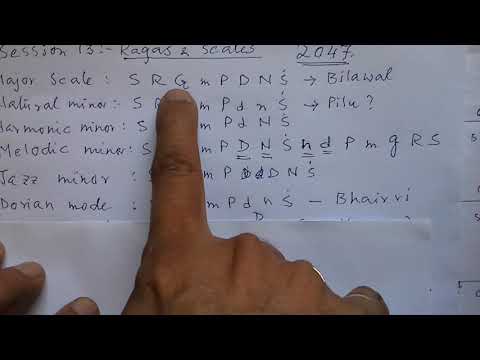 Session 13:- Ragas & Scales 2047.
Major Scale : S R G m P D N Ṡ → Bilawal
Natural minor: S R m P d n Ṡ → Pilu ?
Harmonic minor: S m P d N Ṡ
Melodic minor: S m P D N Ṡ n d P m g R S
Jazz minor : m P D N Ṡ
Dorian mode : m P d n Ṡ - Bhairvi
D